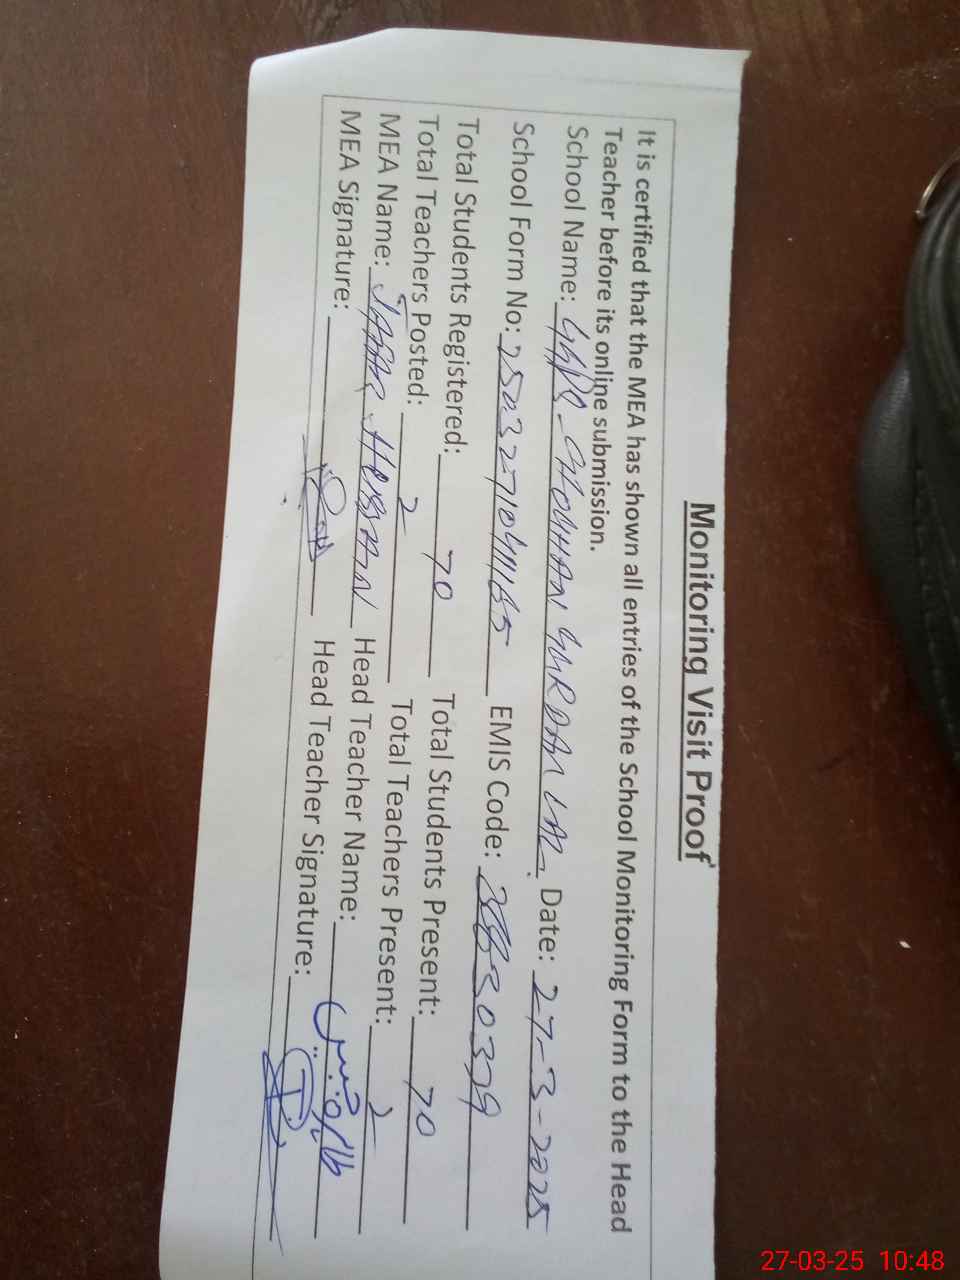 Monitoring Visit Proof
It is certified that the MEA has shown all entries of the School Monitoring Form to the Head
Teacher before its online submission.
School Name: CHOUHAN Date: 27-3-2025
School Form No: EMIS Code:
Total Students Registered: 70 Total Students Present: 70
Total Teachers Posted: 2 Total Teachers Present: 2
MEA Name: Head Teacher Name:
MEA Signature: Head Teacher Signature:
27-03-25 10:48